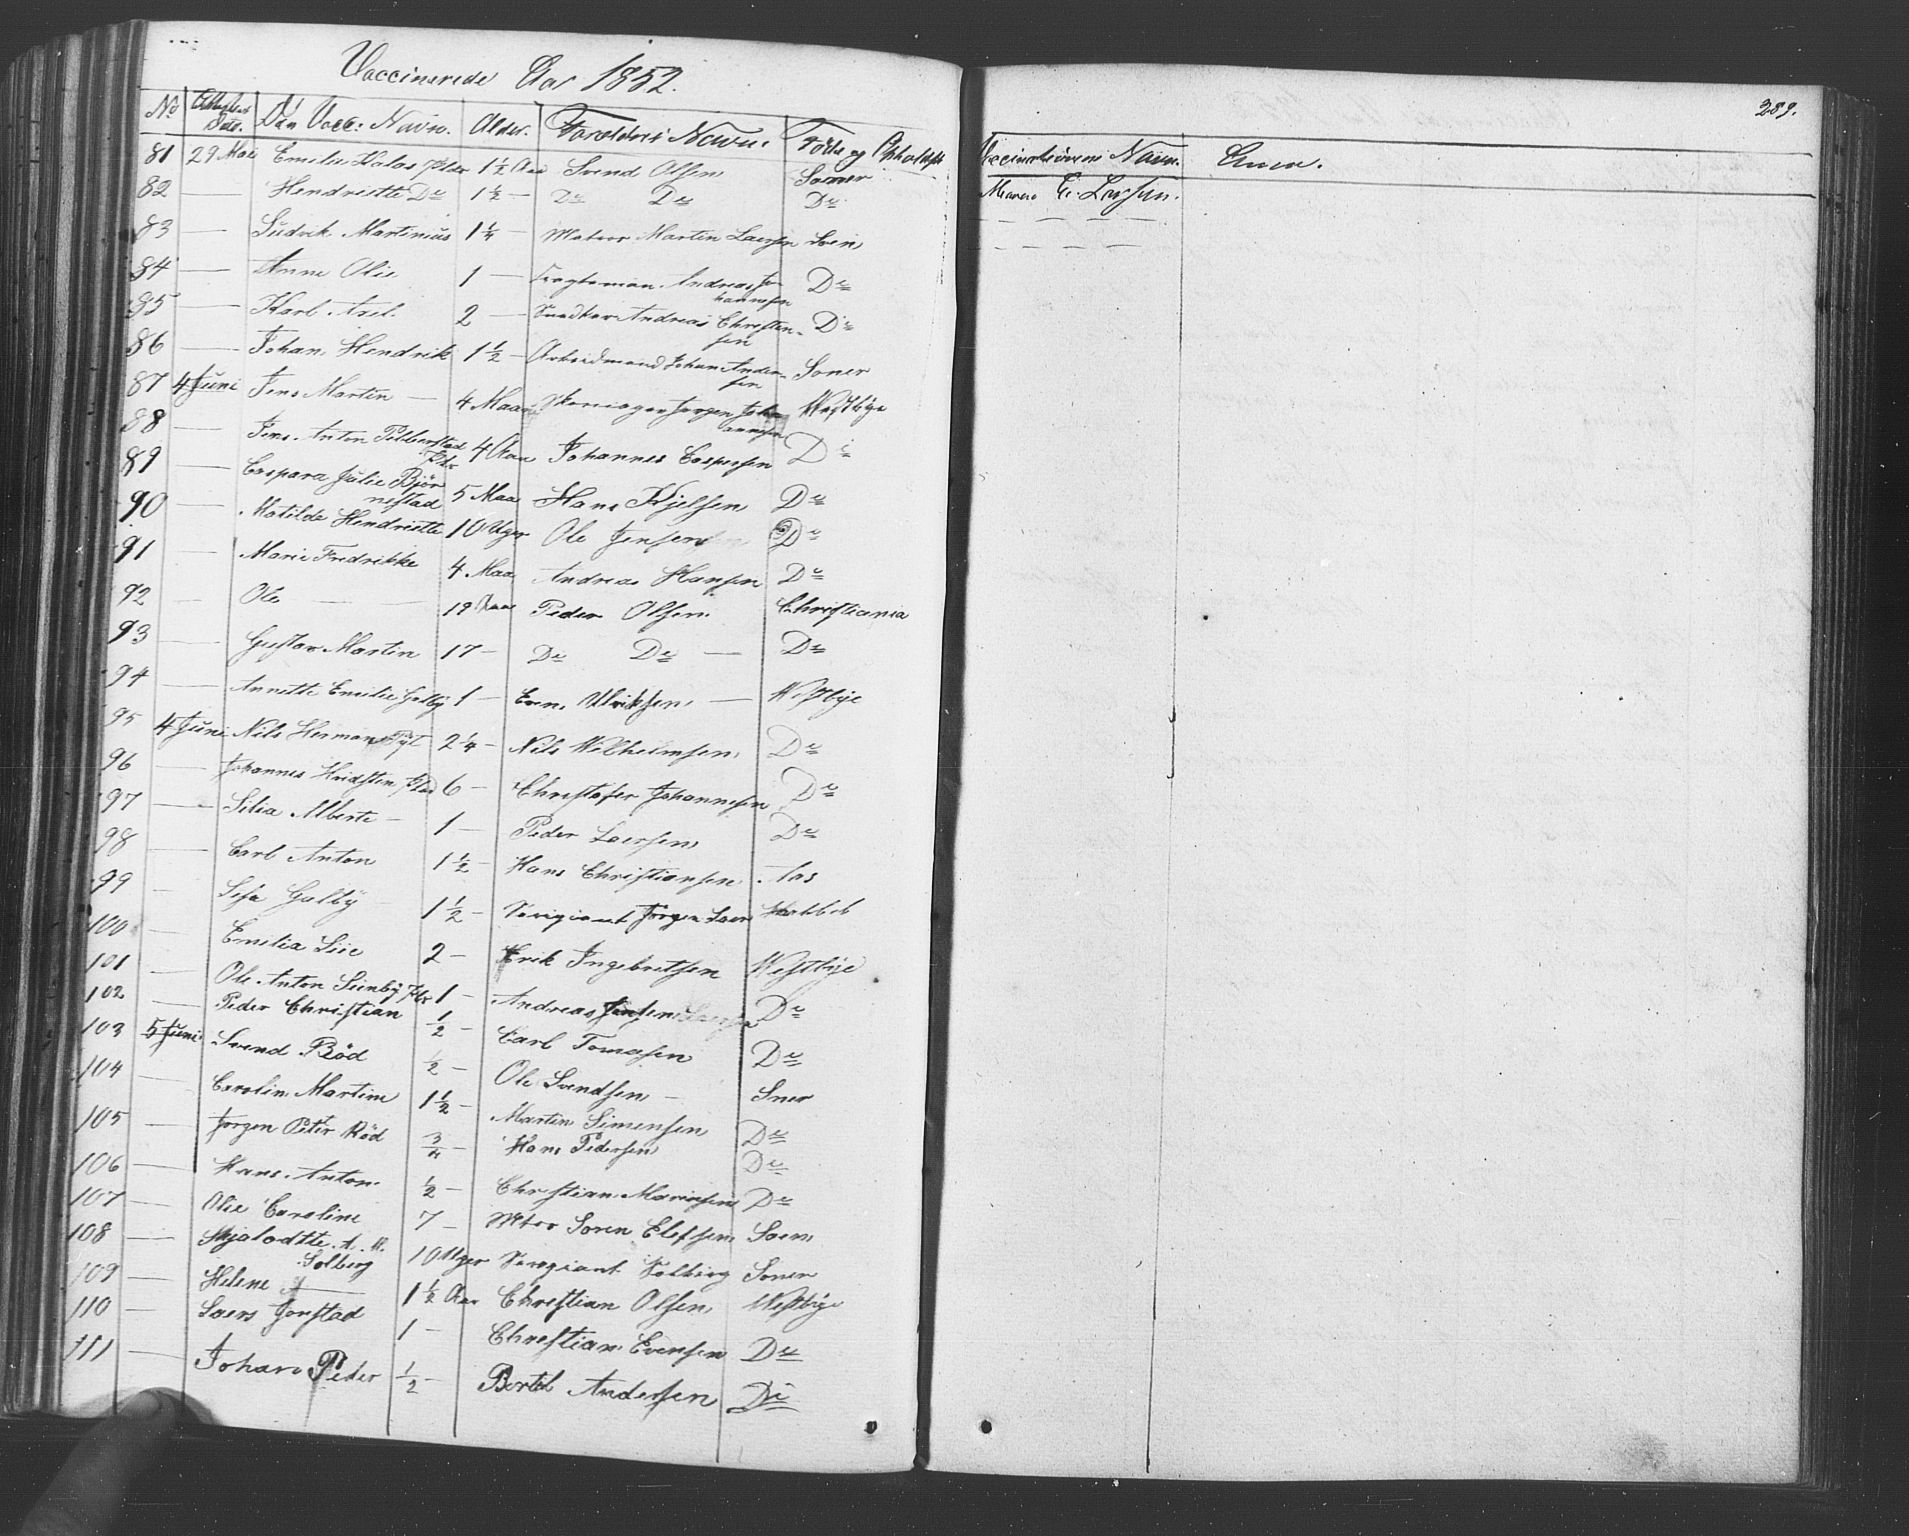 Vaccinerede Aar 1852.
289.
No Attestens Dato. Den Vacc: Navn. Alder. Forældres Navn. Föde og Opholdst
Vaccinatörens Navn. Anm.
81 29 Mai Emilie Plds 1½ Aar Svend Olsen Soner
Maren E. Larsen.
82 — Hendriette Do 1½ — Do Do Do
— — — —
83 — Ludvik Martinius 1¼ — Matros Martin Laersen Soen
— — — —
84 — Anne Olie 1 — Andreas Jo- Do
hannesen
85 — Karl Axel 2 — Snedker Andreas Christen- Do
sen
86 — Johan Hendrik 1½ — Arbeidmand Johan Ander- Soner
sen
87 4 Juni Jens Martin — 4 Maan Jørgen Joh- Westbye
annesen
88 — Jens Anton 4 Aar Johannes Caspersen Do
Plds
89 — Caspara Julie Björ 5 Maa Hans Kjelsen Do
nestad
90 — Matilde Hendriette 10 Uger Ole Jensen Do
91 — Marie Fredrikke 4 Maa Andreas Hansen Do
92 — Ole — 19 Aar Peder Olsen Christiania
93 — Gustav Martin 17 — Do Do — Do
94 — Annette Emilie Galby 1 — Even Ulriksen — Westbye
95 4 Juni Nils Herman 2¼ — Nils Wilhelmsen Do
96 Johannes Plds 6 — Christofer Johannesen Do
97 — Silia Alberte — 1 — Peder Laersen Do
98 — Carl Anton 1½ — Hans Christiansen Aas
99 — Galby 1½ — Sergiant Jörgen Laers
100 — Emilia Lise 2 — Erik Ingebretsen Westbye
101 — Ole Anton Sunby Plds 1 — Andreas Jensen Do
102 — Peder Christian ½ — Carl Tomasen Do
103 5 Juni Svend Röd ½ — Ole Svendsen — Soner
104 — Carolin Martine 1½ — Martin Simensen Do
105 — Jorgen Peter Röd ¾ — Hans Pedersen Do
106 — Hans Anton ½ — Christian Do
107 — Olie Caroline 7 — Mtros Soren Elefsen Soen
108 — A. M. 10 Uger Sergiant Solberg Soner
Solberg
109 — Helene — 1½ Aar Christian Olsen Westbye
110 — Laers Jonstad 1 — Christian Evensen Do
111 — Johan Peder ½ — Bertel Andersen Do